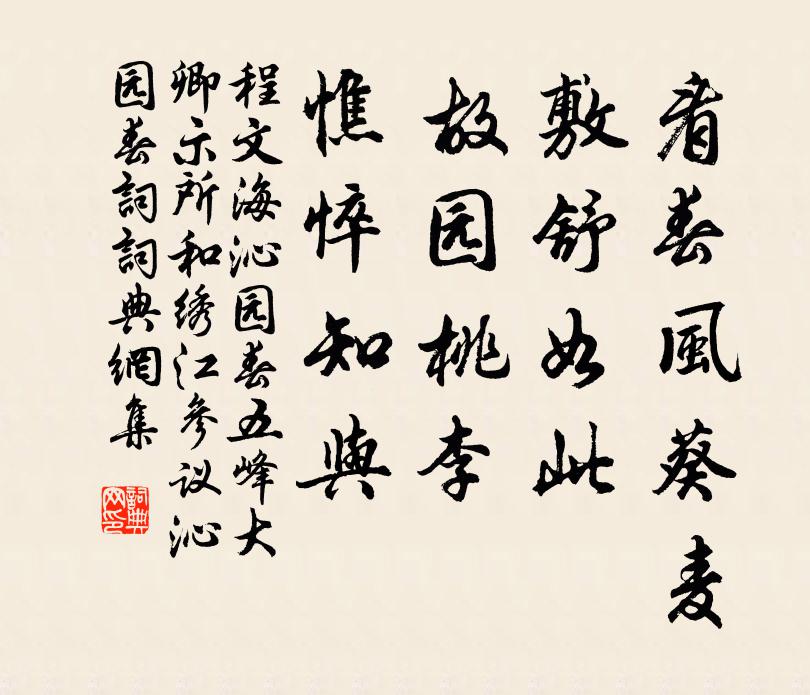 看春風葵麦
敷舒如此
故园桃李
憔悴知與
程文海沁园春五峰大
卿示所和绣江参议沁
园春詞詞典網集
詞典网印